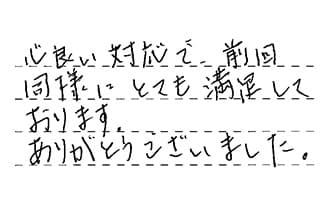 心良い対応で、前回
同様にとても満足して
おります。
ありがとうございました。